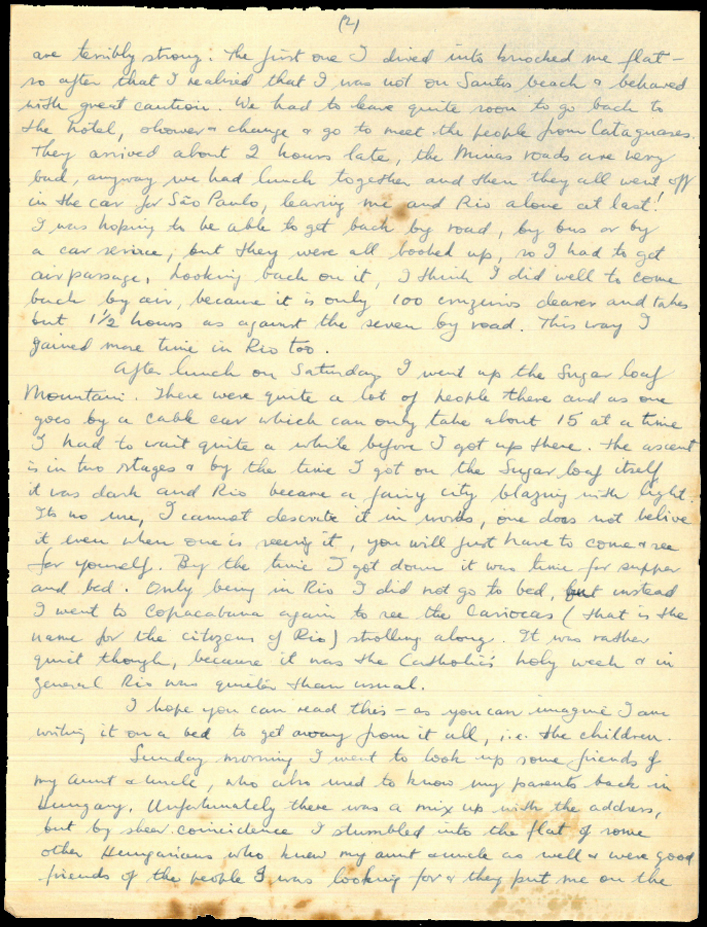 (2)
are terribly strong. The first one I dived into knocked me flat –
so after that I realised that I was not on Santos beach & behaved
with great caution. We had to leave quite soon to go back to
the hotel, shower & change & go to meet the people from Cataguases.
They arrived about 2 hours late, the Minas roads are very
bad, anyway we had lunch together and then they all went off
in the car for São Paulo, leaving me and Rio alone at last!
I was hoping to be able to get back by road, by bus or by
a car service, but they were all booked up, so I had to get
air passage. Looking back on it, I think I did well to come
back by air, because it is only 100 cruzeiros dearer and takes
but 1½ hours as against the seven by road. This way I
gained more time in Rio too.
After lunch on Saturday I went up the Sugar loaf
Mountain. There were quite a lot of people there and as one
goes by a cable car which can only take about 15 at a time
I had to wait quite a while before I got up there. The ascent
is in two stages & by the time I got on the Sugar loaf itself
it was dark and Rio became a fairy city blazing with light.
Its no use, I cannot describe it in words, one does not belive
it even when one is seeing it, you will just have to come & see
for yourself. By the time I got down it was time for supper
and bed. Only being in Rio I did not go to bed, but instead
I went to Copacabana again to see the Cariocas (that is the
name for the citizens of Rio) strolling along. It was rather
quiet though, because it was the Catholics holy week & in
general Rio was quieter than usual.
I hope you can read this – as you can imagine I am
writing it on a bed to get away from it all, i.e. the children.
Sunday morning I went to look up some friends of
my aunt & uncle, who also used to know my parents back in
Hungary. Unfortunately there was a mix up with the address,
but by shear coincidence I stumbled into the flat of some
other Hungarians who knew my aunt & uncle as well & were good
friends of the people I was looking for & they put me on the